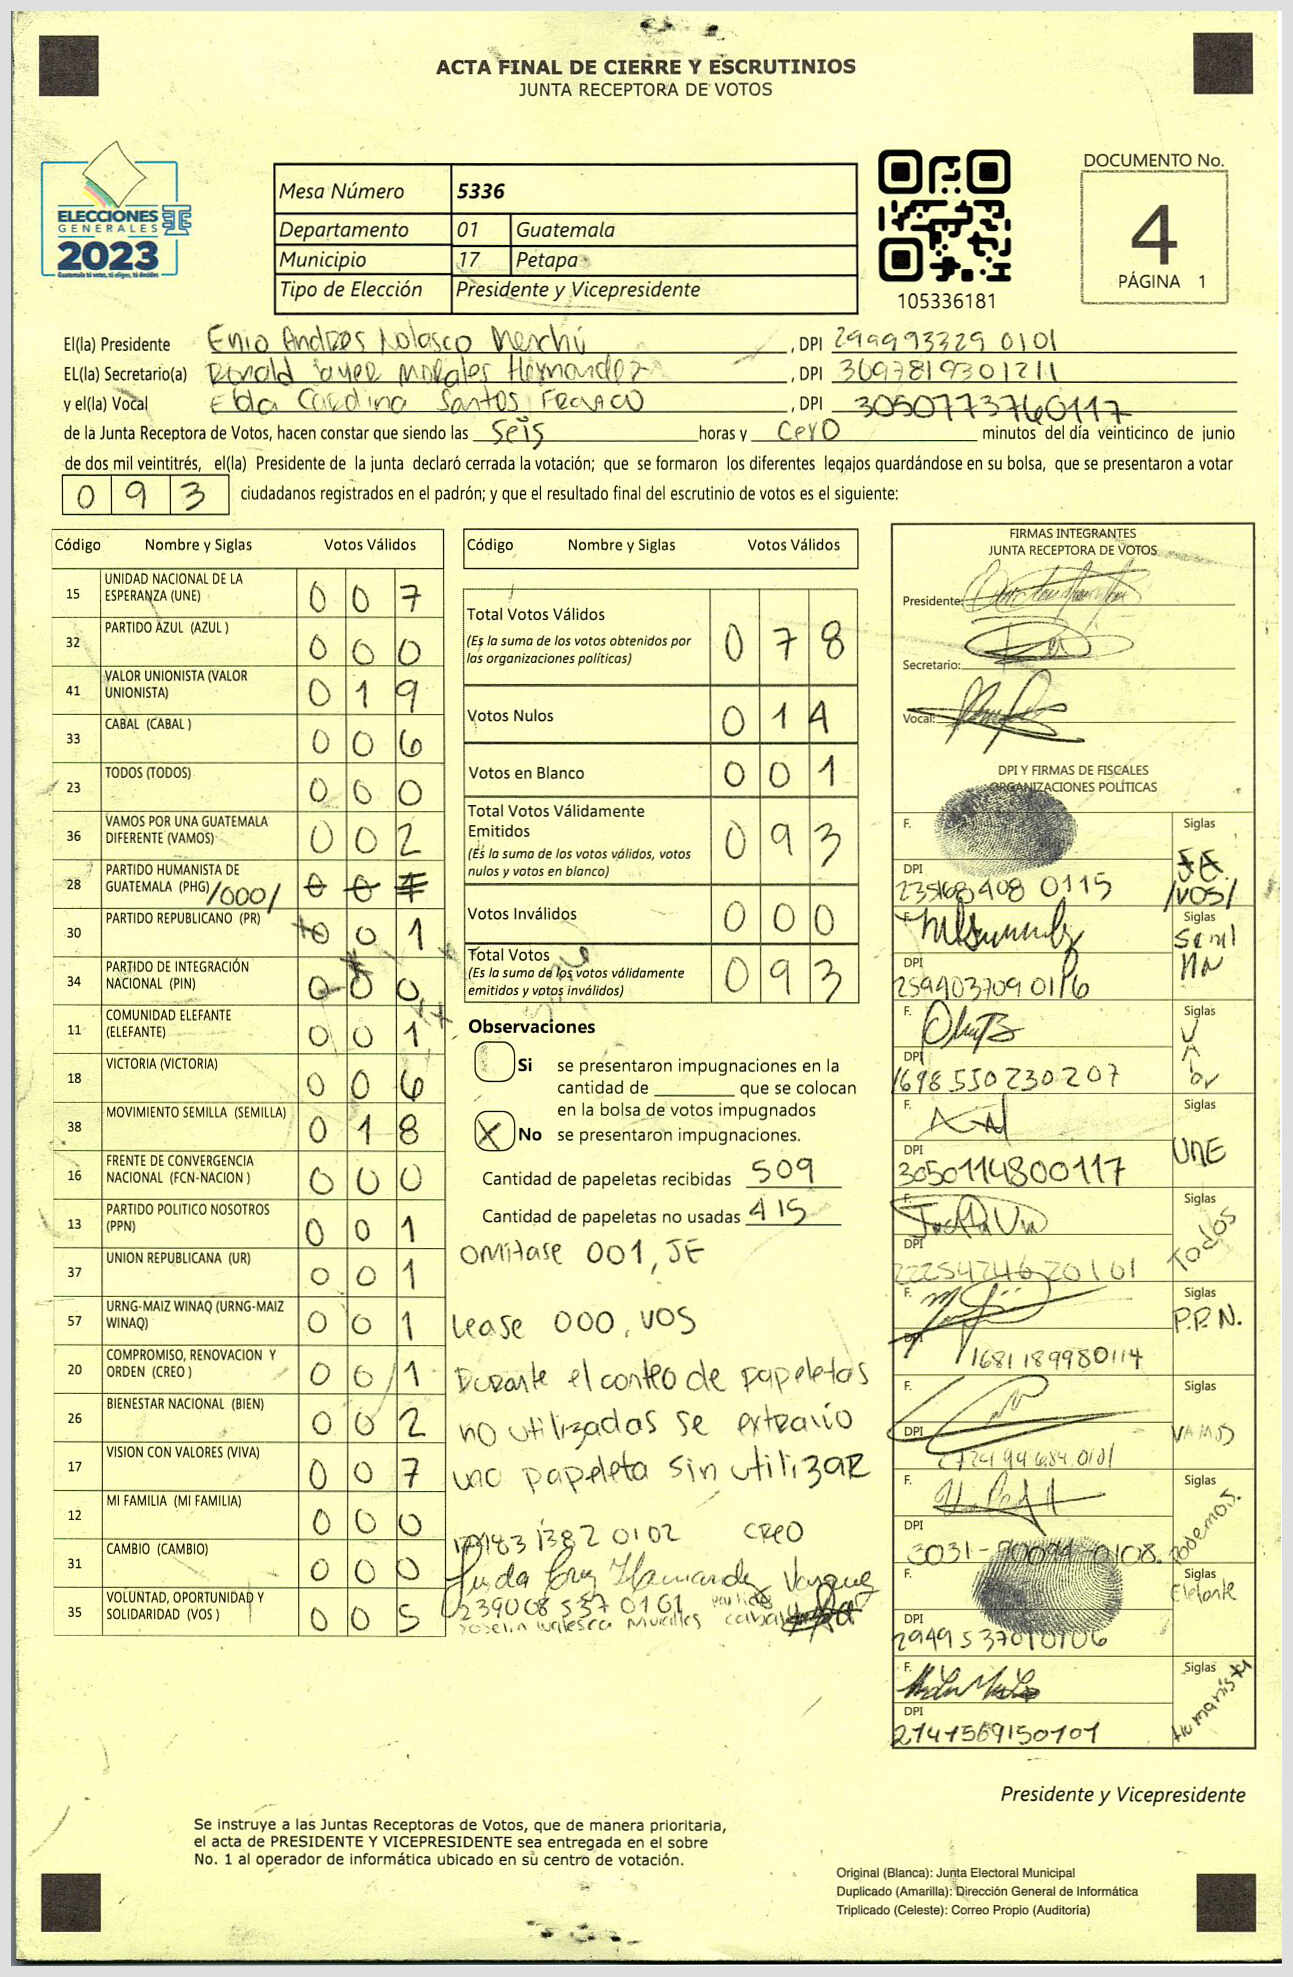 ACTA FINAL DE CIERRE Y ESCRUTINIOS
JUNTA RECEPTORA DE VOTOS
ELECCIONES
GENERALES
2023
Guatemala tú votas, tú eliges, tú decides
Mesa Número 5336
Departamento 01 Guatemala
Municipio 17 Petapa
Tipo de Elección Presidente y Vicepresidente
105336181
DOCUMENTO No.
4
PÁGINA 1
El(la) Presidente Enio Andres Nolasco Menchú , DPI 299993329 0101
EL(la) Secretario(a) Ronald Morales Hernandez , DPI 3697819301211
y el(la) Vocal Elda Carolina Santos , DPI 3050773760117
de la Junta Receptora de Votos, hacen constar que siendo las seis horas y cero minutos del día veinticinco de junio
de dos mil veintitrés, el(la) Presidente de la junta declaró cerrada la votación; que se formaron los diferentes legajos guardándose en su bolsa, que se presentaron a votar
0 9 3 ciudadanos registrados en el padrón; y que el resultado final del escrutinio de votos es el siguiente:
Código Nombre y Siglas Votos Válidos
15 UNIDAD NACIONAL DE LA ESPERANZA (UNE) 0 0 7
32 PARTIDO AZUL (AZUL ) 0 0 0
41 VALOR UNIONISTA (VALOR UNIONISTA) 0 1 9
33 CABAL (CABAL ) 0 0 6
23 TODOS (TODOS) 0 0 0
36 VAMOS POR UNA GUATEMALA DIFERENTE (VAMOS) 0 0 2
28 PARTIDO HUMANISTA DE GUATEMALA (PHG) /000/ 0 0
30 PARTIDO REPUBLICANO (PR) 0 0 1
34 PARTIDO DE INTEGRACIÓN NACIONAL (PIN) 0 0 0
11 COMUNIDAD ELEFANTE (ELEFANTE) 0 0 1
18 VICTORIA (VICTORIA) 0 0 6
38 MOVIMIENTO SEMILLA (SEMILLA) 0 1 8
16 FRENTE DE CONVERGENCIA NACIONAL (FCN-NACION ) 0 0 0
13 PARTIDO POLITICO NOSOTROS (PPN) 0 0 1
37 UNION REPUBLICANA (UR) 0 0 1
57 URNG-MAIZ WINAQ (URNG-MAIZ WINAQ) 0 0 1
20 COMPROMISO, RENOVACION Y ORDEN (CREO ) 0 0 1
26 BIENESTAR NACIONAL (BIEN) 0 0 2
17 VISION CON VALORES (VIVA) 0 0 7
12 MI FAMILIA (MI FAMILIA) 0 0 0
31 CAMBIO (CAMBIO) 0 0 0
35 VOLUNTAD, OPORTUNIDAD Y SOLIDARIDAD (VOS ) 0 0 5
Código Nombre y Siglas Votos Válidos
Total Votos Válidos 0 7 8
(Es la suma de los votos obtenidos por
las organizaciones políticas)
Votos Nulos 0 1 4
Votos en Blanco 0 0 1
Total Votos Válidamente
Emitidos 0 9 3
(Es la suma de los votos válidos, votos
nulos y votos en blanco)
Votos Inválidos 0 0 0
Total Votos 0 9 3
(Es la suma de los votos válidamente
emitidos y votos inválidos)
Observaciones
Si se presentaron impugnaciones en la
cantidad de ________ que se colocan
en la bolsa de votos impugnados
X No se presentaron impugnaciones.
Cantidad de papeletas recibidas 509
Cantidad de papeletas no usadas 415
omitase 001, JE
Lease 000, VOS
Durante el conteo de papeletas
no utilizadas se extravio
una papeleta sin utilizar
1382 0102 CREO
Hernandez Vasquez
239008537 0101 partido
cabal
FIRMAS INTEGRANTES
JUNTA RECEPTORA DE VOTOS
Presidente:
Secretario:
Vocal:
DPI Y FIRMAS DE FISCALES
ORGANIZACIONES POLÍTICAS
F. Siglas
DPI /VOS/
235168408 0115
F. Siglas
DPI
259903709 0116
F. Siglas
DPI
1698 550 230 207
F. Siglas
DPI UNE
3050114800117
F. Siglas
DPI Todos
2225424620101
F. Siglas
DPI P.P.N.
1681189980114
F. Siglas
DPI VAMOS
F. Siglas
DPI Podemos.
F. Siglas
DPI Elefante
2949537010106
F. Siglas
DPI Humanista
2747569150101
Presidente y Vicepresidente
Se instruye a las Juntas Receptoras de Votos, que de manera prioritaria,
el acta de PRESIDENTE Y VICEPRESIDENTE sea entregada en el sobre
No. 1 al operador de informática ubicado en su centro de votación.
Original (Blanca): Junta Electoral Municipal
Duplicado (Amarilla): Dirección General de Informática
Triplicado (Celeste): Correo Propio (Auditoría)